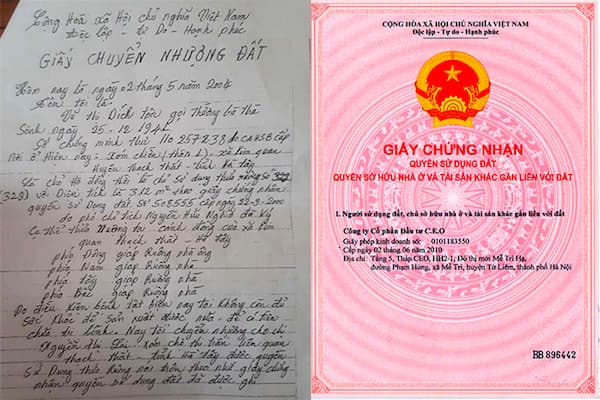 Cộng Hoà xã Hội chủ nghĩa Việt Nam
Độc lập - Tự Do - Hạnh phúc
GIẤY CHUYỂN NHƯỢNG ĐẤT
Hôm nay là ngày 02 tháng 5 năm 2004
Tên tôi là
Vũ thị Dích tên gọi thường
Sinh ngày 25.12.1942
Số chứng minh thư 110 257238 do CAHSB cấp
nơi ở Hiện nay: Xóm chiến (thôn 1) xã liên quan
Huyện thạch thất - tỉnh Hà tây
Sử dụng thửa ruộng số
(328) với Diện tích là 312 m² theo giấy chứng nhận
quyền sử Dụng đất số 508555 cấp ngày 22-9-2000
do phó chủ tịch Nguyễn Hữu Nghĩa đã ký
Cụ thể thửa Ruộng tại cánh đồng của xã liên
quan thạch thất - Hà tây
phía Đông giáp Ruộng nhà ông
phía Nam giáp Ruộng nhà
phía tây giáp Ruộng nhà
phía Bắc giáp Ruộng nhà
Do điều kiện bệnh tật Hiện nay tôi Không còn đủ
Sức Khoẻ để sản xuất được nữa, để có tiền
chữa trị bệnh. Nay tôi chuyển nhượng cho chị
Nguyễn thị liên quan
thạch thất - tỉnh Hà tây được quyền
Sử Dụng thửa Ruộng nói trên theo như giấy chứng
nhận quyền sử dụng đất đã được ghi
CỘNG HÒA XÃ HỘI CHỦ NGHĨA VIỆT NAM
Độc lập - Tự do - Hạnh phúc
GIẤY CHỨNG NHẬN
QUYỀN SỬ DỤNG ĐẤT
QUYỀN SỞ HỮU NHÀ Ở VÀ TÀI SẢN KHÁC GẮN LIỀN VỚI ĐẤT
I. Người sử dụng đất, chủ sở hữu nhà ở và tài sản khác gắn liền với đất
Công ty Cổ phần Đầu tư C.E.O
Giấy phép kinh doanh số: 0101183550
Cấp ngày 02 tháng 06 năm 2010
Địa chỉ: Tầng 5, Tháp CEO, HH2-1, Đô thị mới Mễ Trì Hạ,
đường Phạm Hùng, xã Mễ Trì, huyện Từ Liêm, thành phố Hà Nội
BB 896442